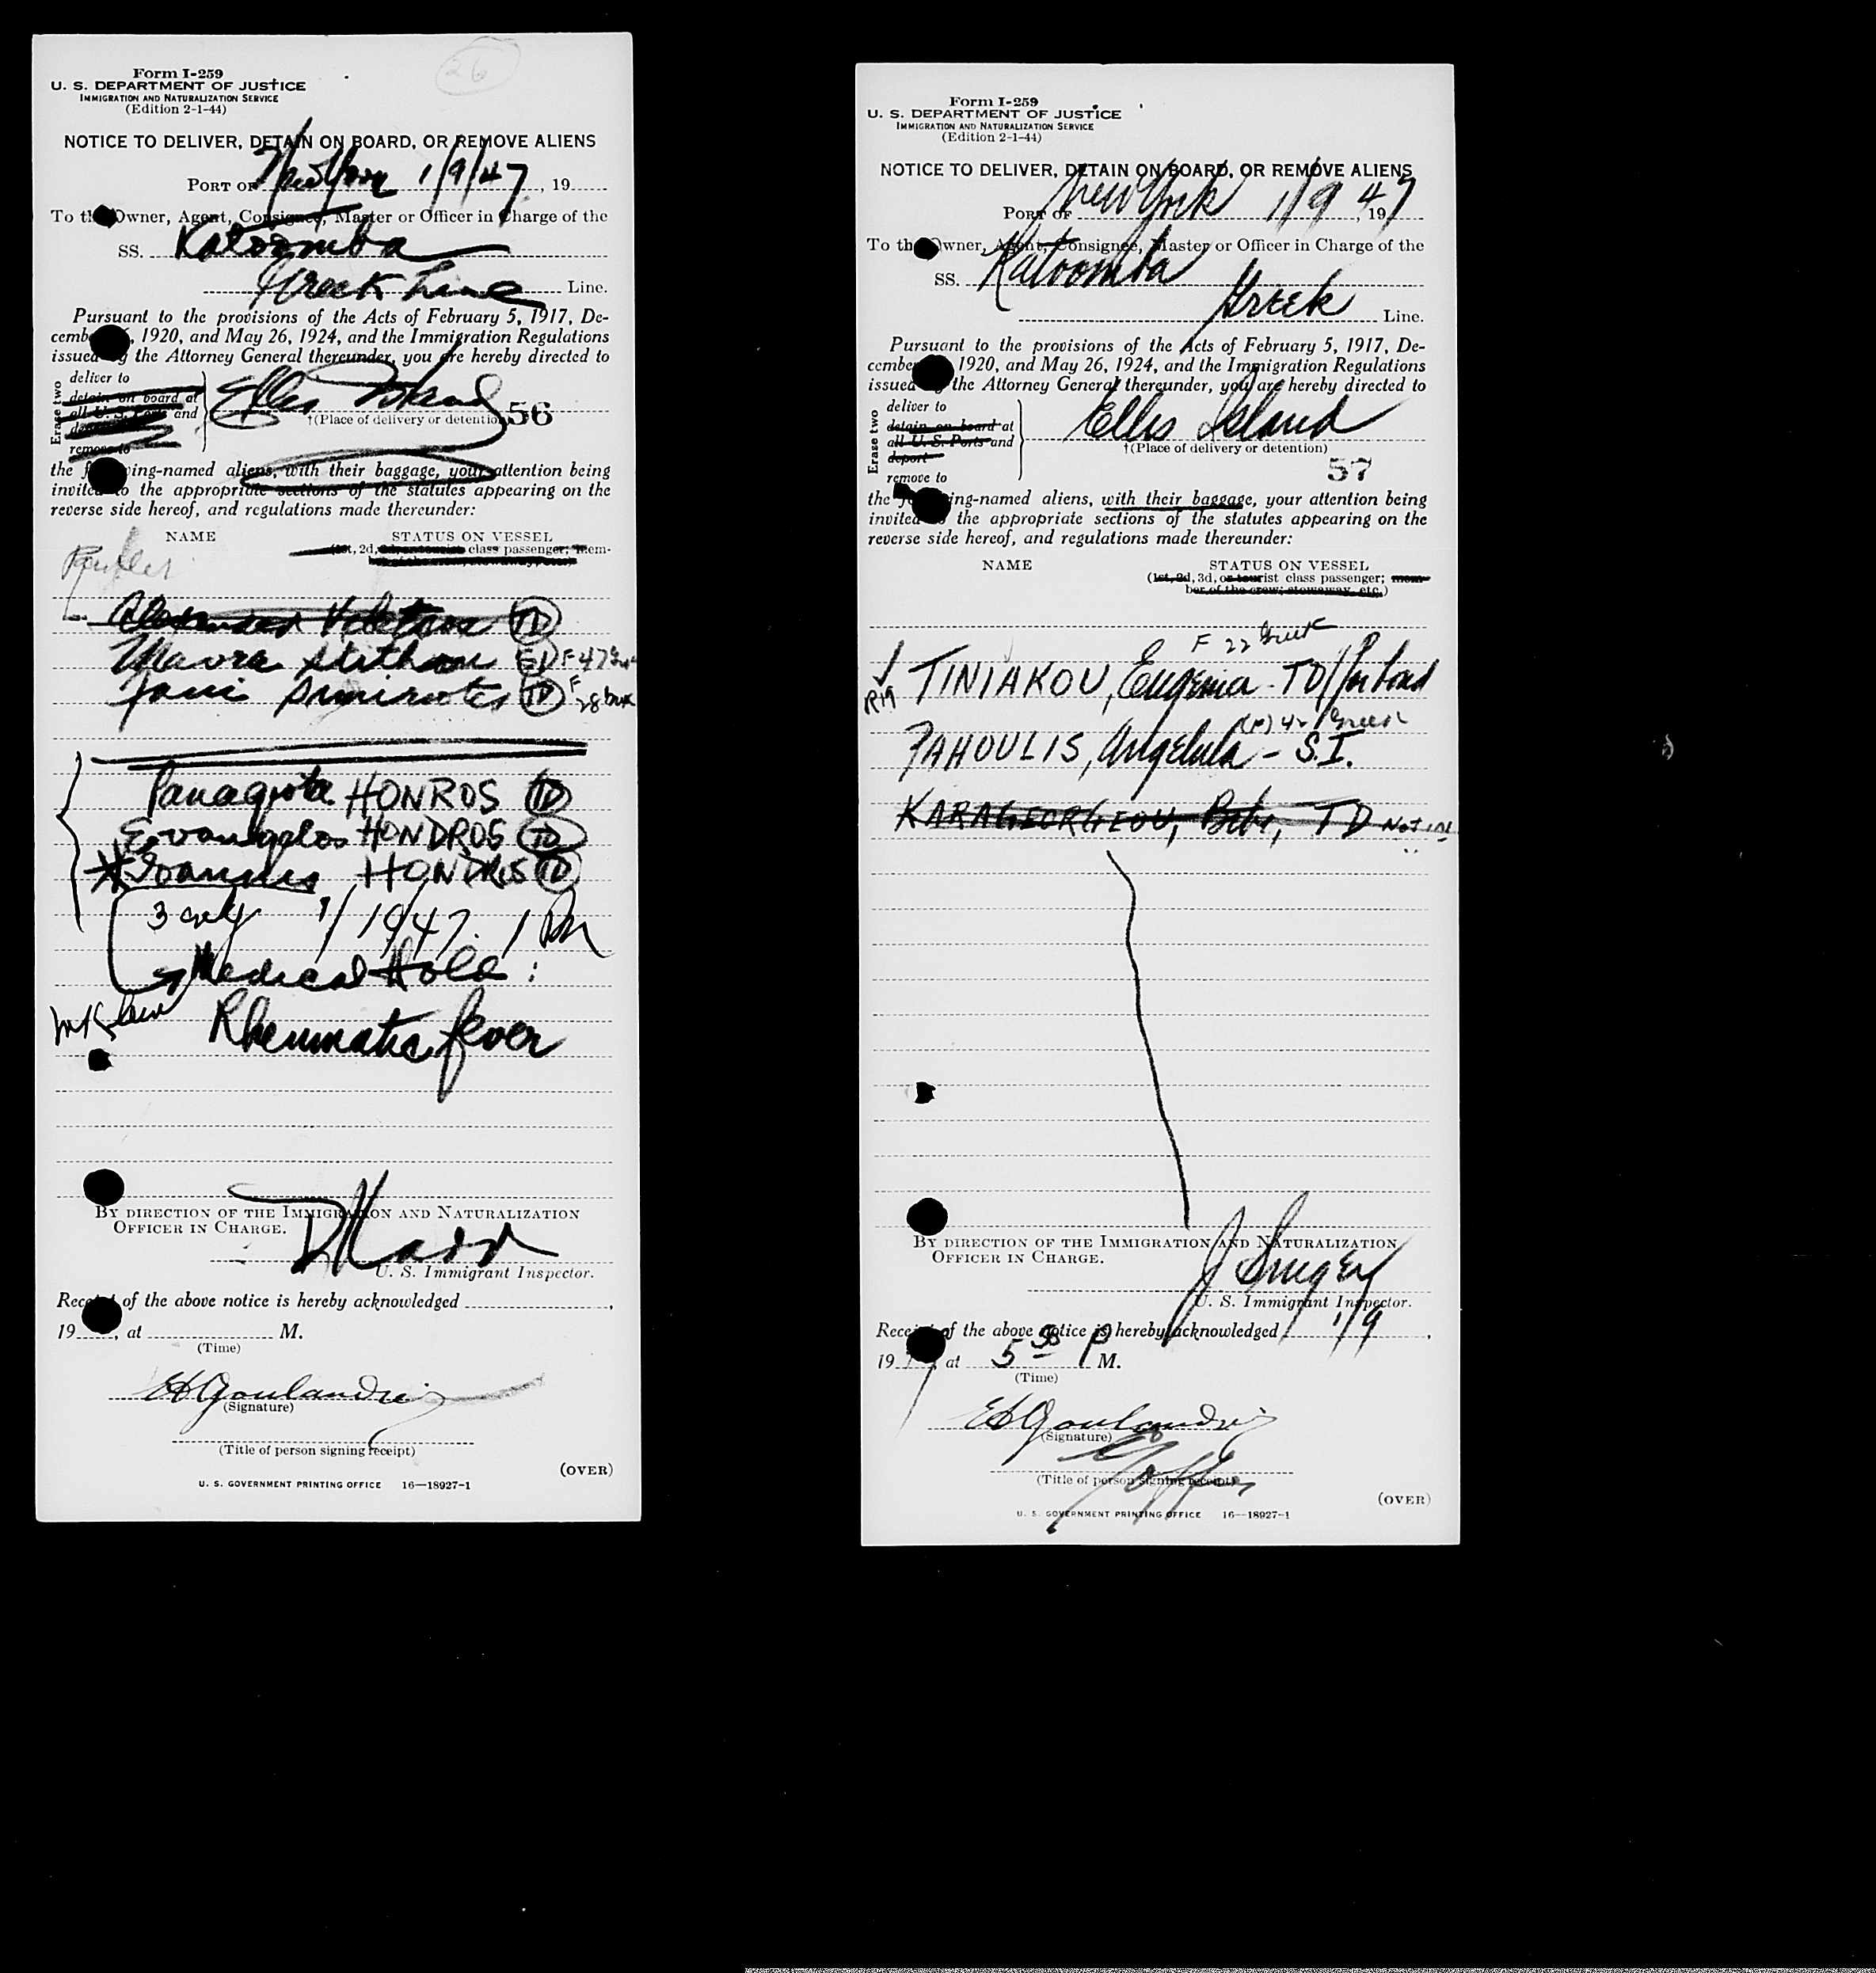 26
Form I-259
U. S. DEPARTMENT OF JUSTICE
IMMIGRATION AND NATURALIZATION SERVICE
(Edition 2-1-44)
NOTICE TO DELIVER, DETAIN ON BOARD, OR REMOVE ALIENS
PORT OF New York 1/9/47, 19
To the Owner, Agent, Consignee, Master or Officer in Charge of the
SS. Katoomba
Greek Line Line.
Pursuant to the provisions of the Acts of February 5, 1917, De-
cember , 1920, and May 26, 1924, and the Immigration Regulations
issued by the Attorney General thereunder, you are hereby directed to
Erase two
deliver to
detain on board at
all U. S. Ports and
remove to
Ellis Island
†(Place of delivery or detention) 56
the following-named aliens, with their baggage, your attention being
invited to the appropriate sections of the statutes appearing on the
reverse side hereof, and regulations made thereunder:
NAME STATUS ON VESSEL
(1st, 2d, class passenger; mem-
TD
Mavra F 47
TD F 28
Panagiota HONROS TD
Evangelos HONDROS TD
* Ioannis HONDROS TD
3 only 1/19/47. 1
Medical Hold:
Rheumatic fever
BY DIRECTION OF THE IMMIGRATION AND NATURALIZATION
OFFICER IN CHARGE.
U. S. Immigrant Inspector.
Receipt of the above notice is hereby acknowledged ,
19 , at M.
(Time)
EH Goulandris
(Signature)
(Title of person signing receipt)
(OVER)
U. S. GOVERNMENT PRINTING OFFICE 16—18927-1
Form I-259
U. S. DEPARTMENT OF JUSTICE
IMMIGRATION AND NATURALIZATION SERVICE
(Edition 2-1-44)
NOTICE TO DELIVER, DETAIN ON BOARD, OR REMOVE ALIENS
PORT OF New York 1/9, 1947
To the Owner, Agent, Consignee, Master or Officer in Charge of the
SS. Katoomba
Greek Line.
Pursuant to the provisions of the Acts of February 5, 1917, De-
cember 1920, and May 26, 1924, and the Immigration Regulations
issued by the Attorney General thereunder, you are hereby directed to
Erase two
deliver to
detain on board at
all U. S. Ports and
deport
remove to
Ellis Island
†(Place of delivery or detention)
57
the following-named aliens, with their baggage, your attention being
invited to the appropriate sections of the statutes appearing on the
reverse side hereof, and regulations made thereunder:
NAME STATUS ON VESSEL
(1st, 2d, 3d, or tourist class passenger; mem-
ber of the crew; stowaway, etc.)
F 22 Greek
TINIAKOU, Eugenia - TD/
(F) 42 Greek
PAHOULIS, Angeliula - S.I.
KARAGEORGEOU, Bebe, TD Not in
BY DIRECTION OF THE IMMIGRATION AND NATURALIZATION
OFFICER IN CHARGE.
U. S. Immigrant Inspector.
Receipt of the above notice is hereby acknowledged 1/9,
19 7, at 5 30 P M.
(Time)
EH Goulandris
(Signature)
(Title of person signing receipt)
(OVER)
U. S. GOVERNMENT PRINTING OFFICE 16—18927-1